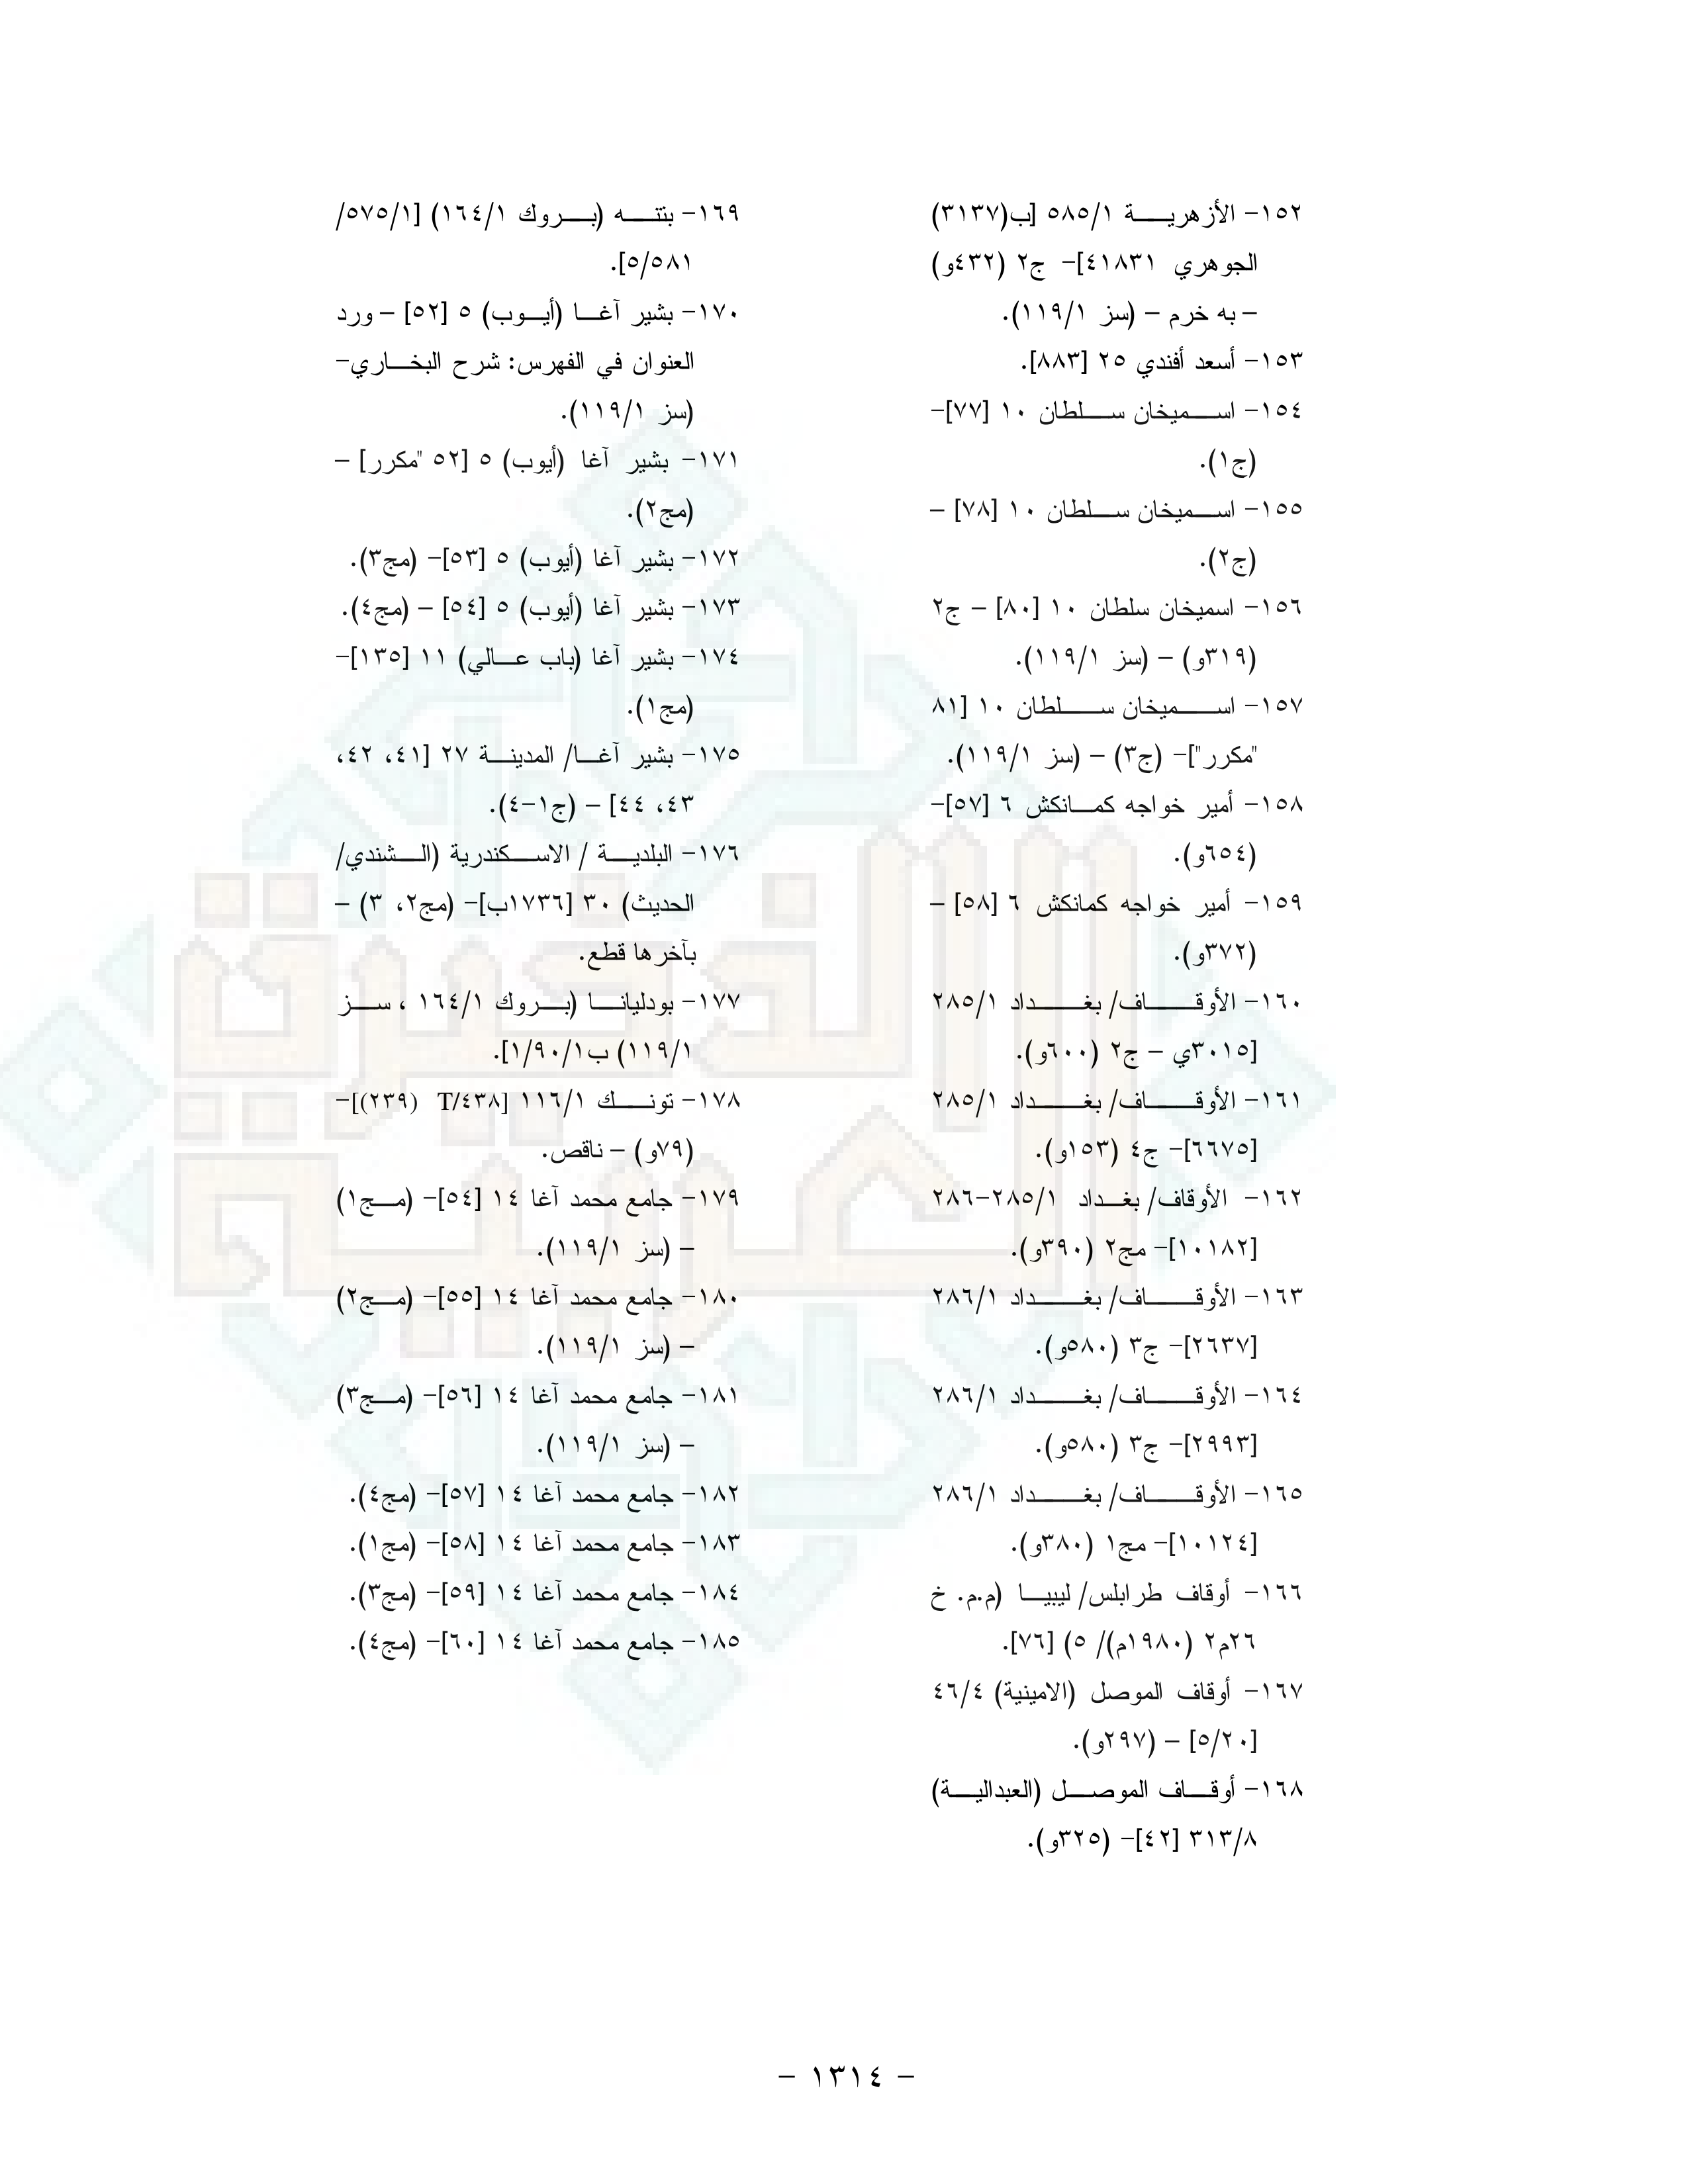 ١٥٢- الأزهرية ٥٨٥/١ [ب(٣١٣٧)
الجوهري ٤١٨٣١]- ج٢ (٤٣٢و)
– به خرم – (سز ١١٩/١).
١٥٣- أسعد أفندي ٢٥ [٨٨٣].
١٥٤- اسميخان سلطان ١٠ [٧٧]-
(ج١).
١٥٥- اسميخان سلطان ١٠ [٧٨] –
(ج٢).
١٥٦- اسميخان سلطان ١٠ [٨٠] – ج٢
(٣١٩و) – (سز ١١٩/١).
١٥٧- اسميخان سلطان ١٠ [٨١
"مكرر"]- (ج٣) – (سز ١١٩/١).
١٥٨- أمير خواجه كمانكش ٦ [٥٧]-
(٦٥٤و).
١٥٩- أمير خواجه كمانكش ٦ [٥٨] –
(٣٧٢و).
١٦٠- الأوقاف/ بغداد ٢٨٥/١
[٣٠١٥ي – ج٢ (٦٠٠و).
١٦١- الأوقاف/ بغداد ٢٨٥/١
[٦٦٧٥]- ج٤ (١٥٣و).
١٦٢- الأوقاف/ بغداد ٢٨٥/١-٢٨٦
[١٠١٨٢]- مج٢ (٣٩٠و).
١٦٣- الأوقاف/ بغداد ٢٨٦/١
[٢٦٣٧]- ج٣ (٥٨٠و).
١٦٤- الأوقاف/ بغداد ٢٨٦/١
[٢٩٩٣]- ج٣ (٥٨٠و).
١٦٥- الأوقاف/ بغداد ٢٨٦/١
[١٠١٢٤]- مج١ (٣٨٠و).
١٦٦- أوقاف طرابلس/ ليبيا (م.م. خ
٢٦م٢ (١٩٨٠م)/ ٥) [٧٦].
١٦٧- أوقاف الموصل (الامينية) ٤٦/٤
[٥/٢٠] – (٢٩٧و).
١٦٨- أوقاف الموصل (العبدالية)
٣١٣/٨ [٤٢]- (٣٢٥و).
١٦٩- بنتنه (بروك ١٦٤/١) [٥٧٥/١/
٥/٥٨١].
١٧٠- بشير آغا (أيوب) ٥ [٥٢] – ورد
العنوان في الفهرس: شرح البخاري-
(سز ١١٩/١).
١٧١- بشير آغا (أيوب) ٥ [٥٢ "مكرر] –
(مج٢).
١٧٢- بشير آغا (أيوب) ٥ [٥٣]- (مج٣).
١٧٣- بشير آغا (أيوب) ٥ [٥٤] – (مج٤).
١٧٤- بشير آغا (باب عالي) ١١ [١٣٥]-
(مج١).
١٧٥- بشير آغا/ المدينة ٢٧ [٤١، ٤٢،
٤٣، ٤٤] – (ج١-٤).
١٧٦- البلدية / الاسكندرية (الشندي/
الحديث) ٣٠ [١٧٣٦ب]- (مج٢، ٣) –
بآخرها قطع.
١٧٧- بودليانا (بروك ١٦٤/١ ، سز
١١٩/١) ب١/٩٠/١].
١٧٨- تونك ١١٦/١ [T/٤٣٨ (٢٣٩)]-
(٧٩و) – ناقص.
١٧٩- جامع محمد آغا ١٤ [٥٤]- (مج١)
– (سز ١١٩/١).
١٨٠- جامع محمد آغا ١٤ [٥٥]- (مج٢)
– (سز ١١٩/١).
١٨١- جامع محمد آغا ١٤ [٥٦]- (مج٣)
– (سز ١١٩/١).
١٨٢- جامع محمد آغا ١٤ [٥٧]- (مج٤).
١٨٣- جامع محمد آغا ١٤ [٥٨]- (مج١).
١٨٤- جامع محمد آغا ١٤ [٥٩]- (مج٣).
١٨٥- جامع محمد آغا ١٤ [٦٠]- (مج٤).
– ١٣١٤ –